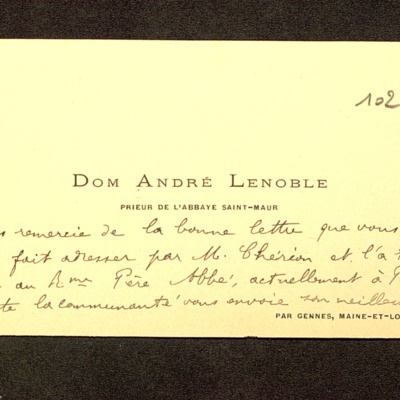 102
DOM ANDRÉ LENOBLE
PRIEUR DE L'ABBAYE SAINT-MAUR
remercie de la bonne lettre que vous
fait adresser par M. Chérion et l'a
au Rme Père Abbé, actuellement à
la communauté vous envoie son meilleu
PAR GENNES, MAINE-ET-LO